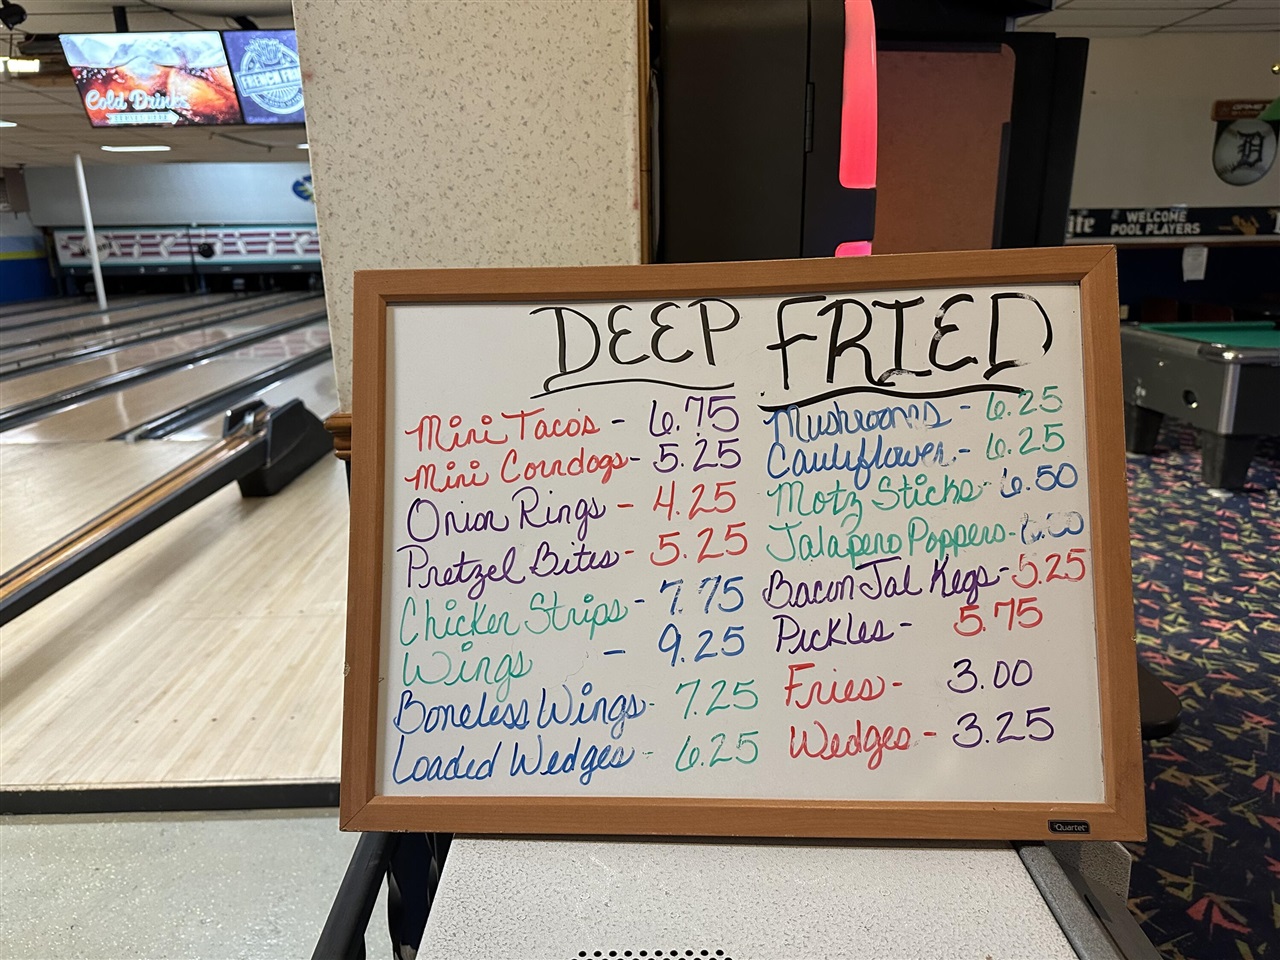 Cold Drinks
FRENCH FRI
WELCOME
POOL PLAYERS
ite
D
DEEP FRIED
Mini Tacos - 6.75
Mini Corndogs - 5.25
Onion Rings - 4.25
Pretzel Bites - 5.25
Chicken Strips - 7.75
Wings - 9.25
Boneless Wings - 7.25
Loaded Wedges - 6.25
Mushrooms - 6.25
Cauliflower - 6.25
Motz Sticks - 6.50
Jalapeno Poppers -
Bacon Jal Kegs - 5.25
Pickles - 5.75
Fries - 3.00
Wedges - 3.25
Quartet